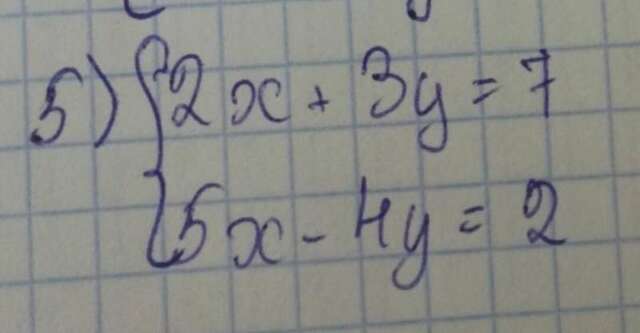 5) { 2x + 3y = 7
5x - 4y = 2